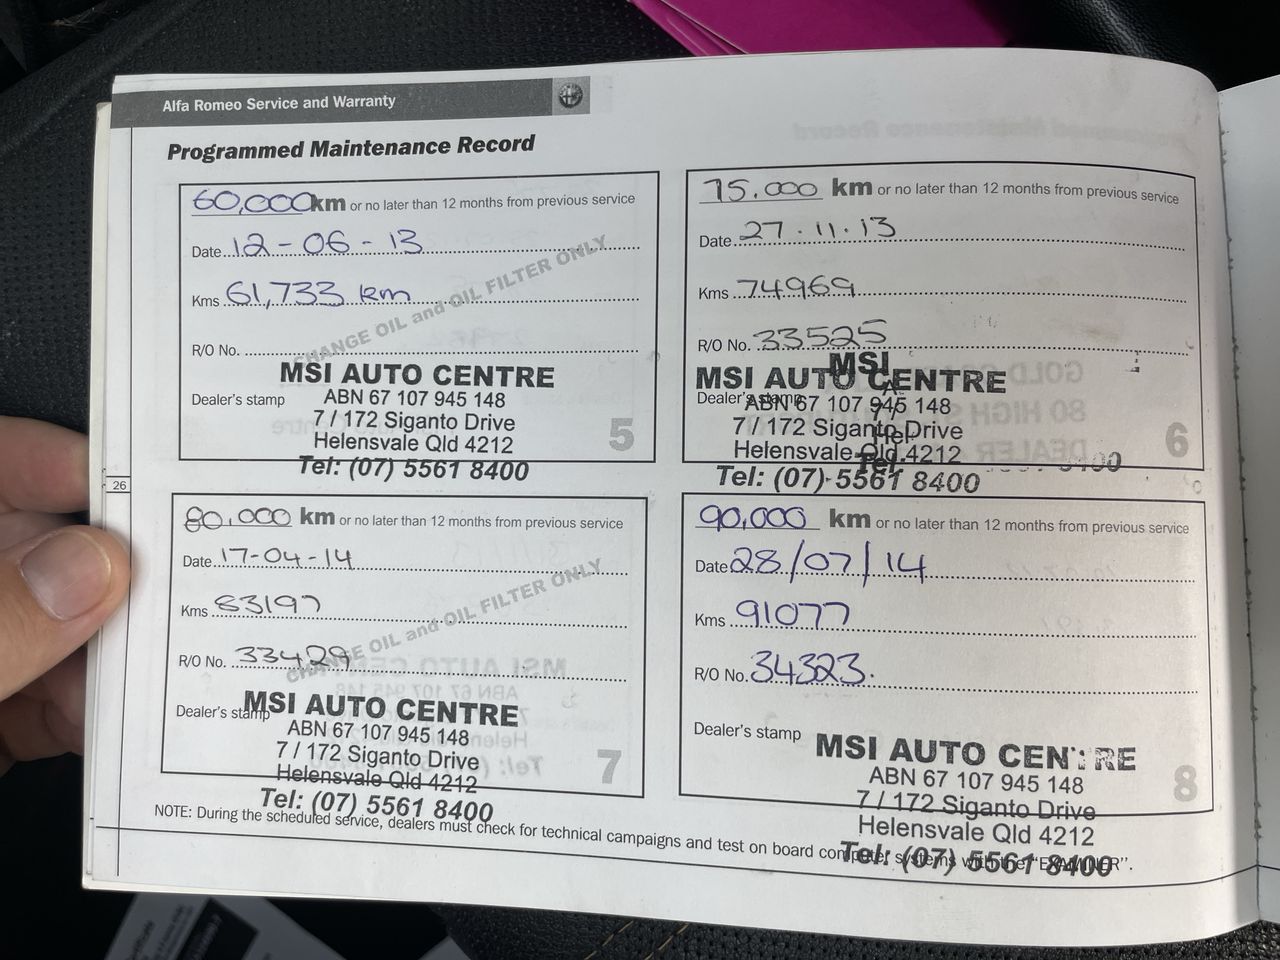 Alfa Romeo Service and Warranty
Programmed Maintenance Record
60,000 km or no later than 12 months from previous service
Date 12-06-13
Kms 61,733 km
R/O No.
CHANGE OIL and OIL FILTER ONLY
Dealer's stamp
MSI AUTO CENTRE
ABN 67 107 945 148
7 / 172 Siganto Drive
Helensvale Qld 4212
Tel: (07) 5561 8400
5
75.000 km or no later than 12 months from previous service
Date 27.11.13
Kms 74969
R/O No. 33525
MSI
MSI AUTO CENTRE
Dealer's stamp
ABN 67 107 945 148
7 / 172 Siganto Drive
Helensvale Qld 4212
Tel: (07) 5561 8400
6
26
80,000 km or no later than 12 months from previous service
Date 17-04-14
Kms 83197
R/O No. 33429
CHANGE OIL and OIL FILTER ONLY
Dealer's stamp
MSI AUTO CENTRE
ABN 67 107 945 148
7 / 172 Siganto Drive
Helensvale Qld 4212
Tel: (07) 5561 8400
7
90,000 km or no later than 12 months from previous service
Date 28/07/14
Kms 91077
R/O No. 34323.
Dealer's stamp
MSI AUTO CENTRE
ABN 67 107 945 148
7 / 172 Siganto Drive
Helensvale Qld 4212
Tel: (07) 5561 8400
8
NOTE: During the scheduled service, dealers must check for technical campaigns and test on board computer systems with the "EXAMINER".